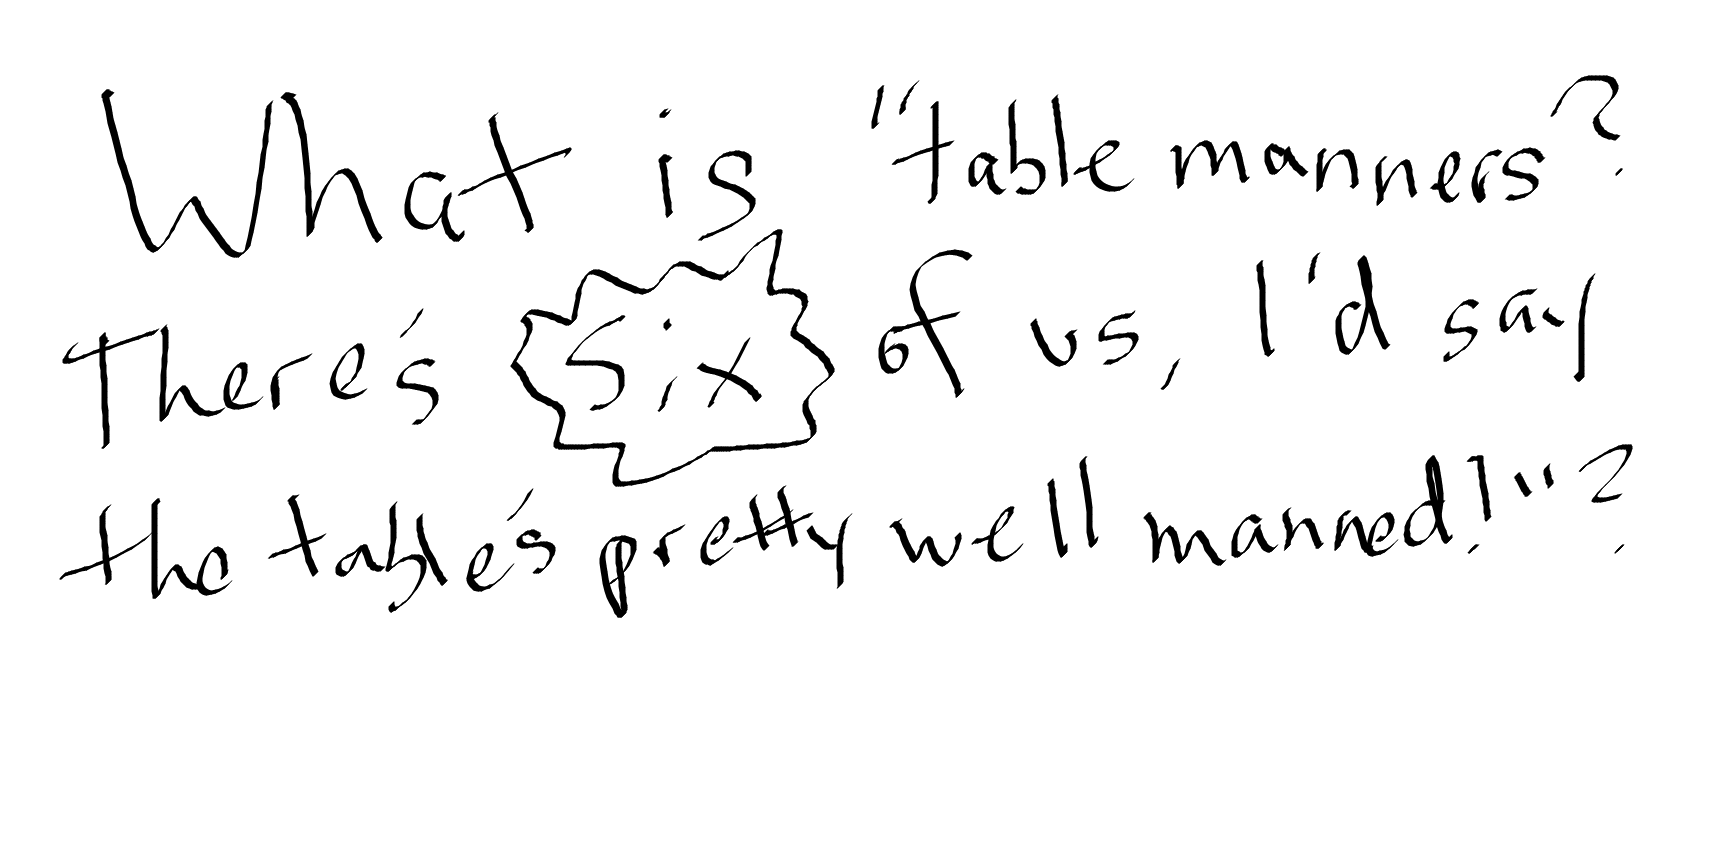 What is "table manners?
There's Six of us, I'd say
the table's pretty well manned!"?